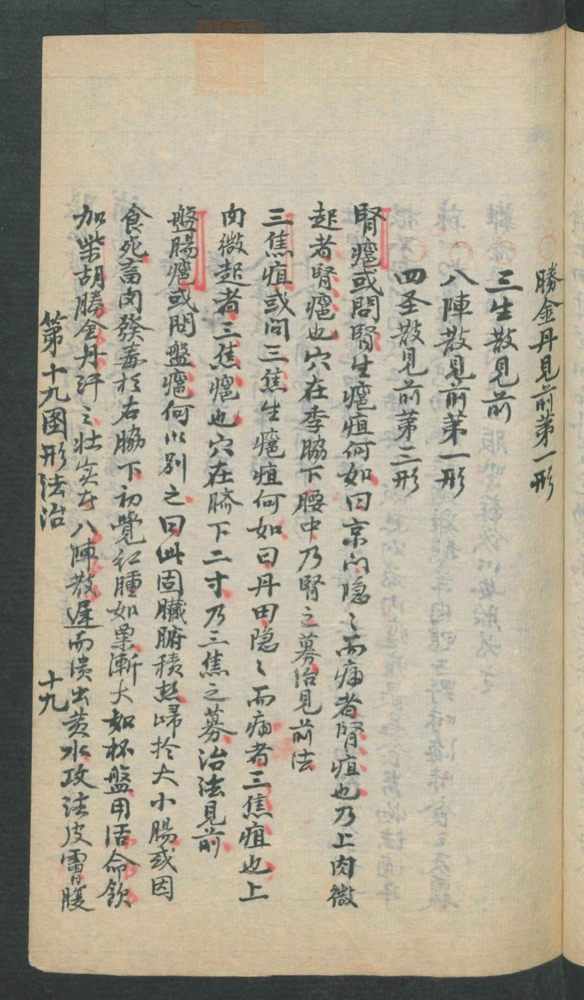 勝金丹見前第一形
三生散見前
八陣散見前第一形
四圣散見前第二形
腎癰或問腎生癰疽何如曰京门隐〻而痛者腎疽也乃上肉微
起者腎癰也穴在季脇下腰中乃腎之募治見前法
三焦疽或问三焦生癰疽何如曰丹田隐〻而痛者三焦疽也上
肉微起者三焦癰也穴在臍下二寸乃三焦之募治法見前
盤腸癰或問盤癰何以别之曰此固臟腑積熱歸於大小腸或因
食死畜肉發毒於右脇下初覺红腫如栗漸大如杯盤用活命飲
加柴胡勝金丹汗之壮实者八陣散遲而潰出黄水攻注皮膚腹
第十九图形法治
十九